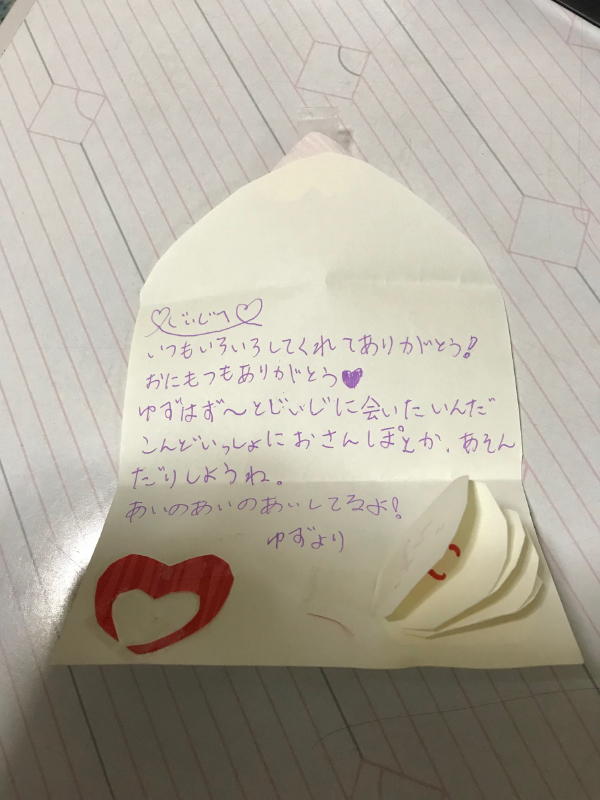 ♡じぃじへ♡
いつもいろいろしてくれてありがとう!
おにもつもありがとう♥
ゆずはず〜とじぃじに会いたいんだ
こんどいっしょにおさんぽとか、あそん
だりしようね。
あいのあいのあいしてるよ!
ゆずより